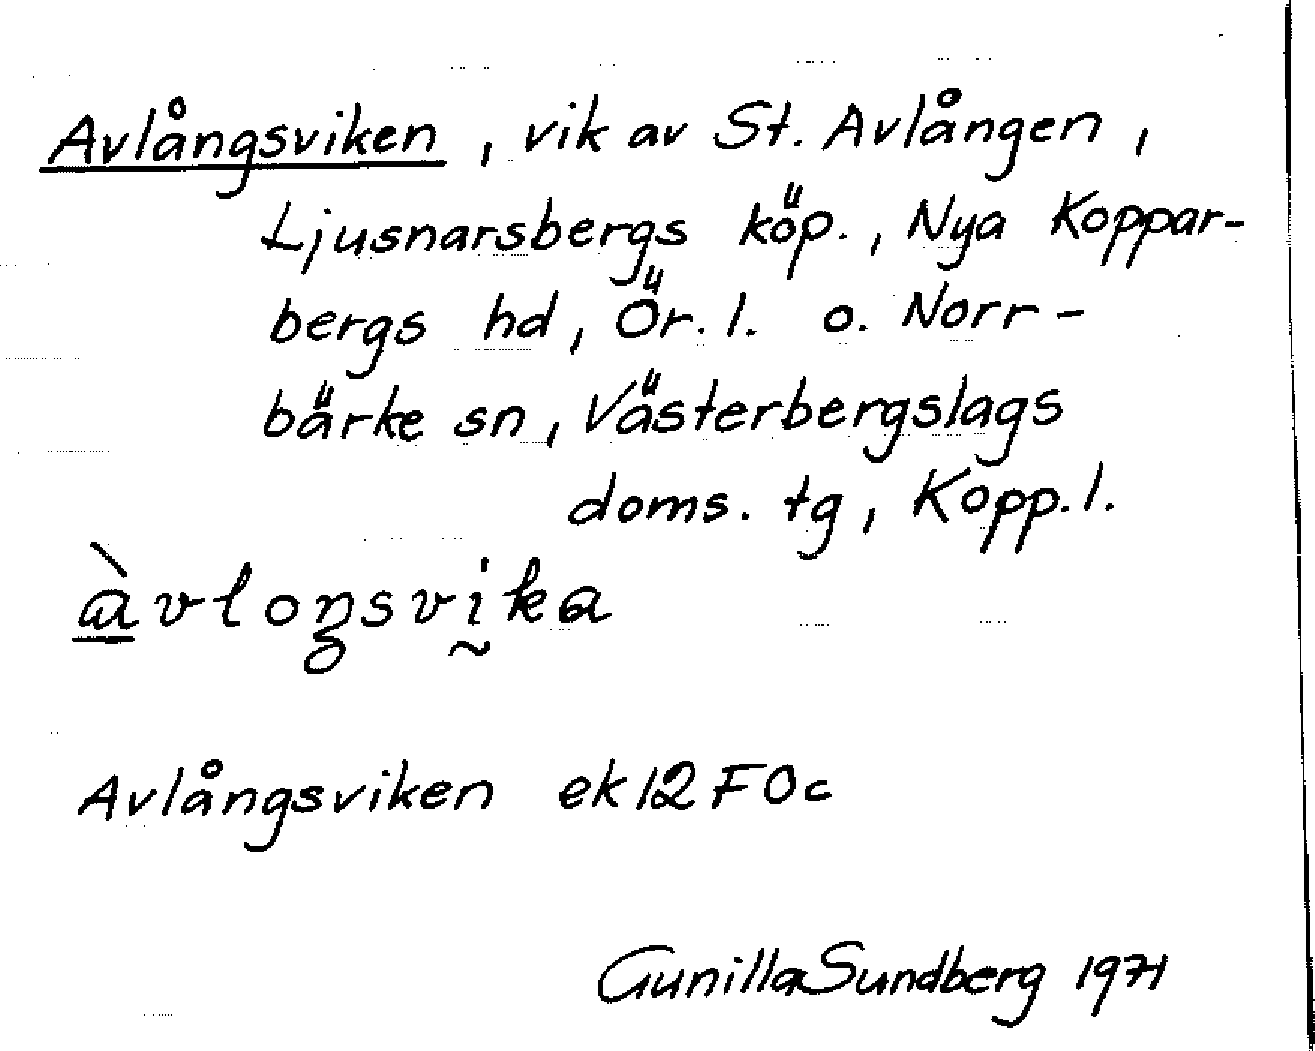 Avlångsviken, vik av St. Avlången,
Ljusnarsbergs köp., Nya Koppar-
bergs hd, Ör. l. o. Norr-
bärke sn, Västerbergslags
doms. tg, Kopp. l.
àvloŋsvḭka
Avlångsviken ek 12 F 0c
Gunilla Sundberg 1971